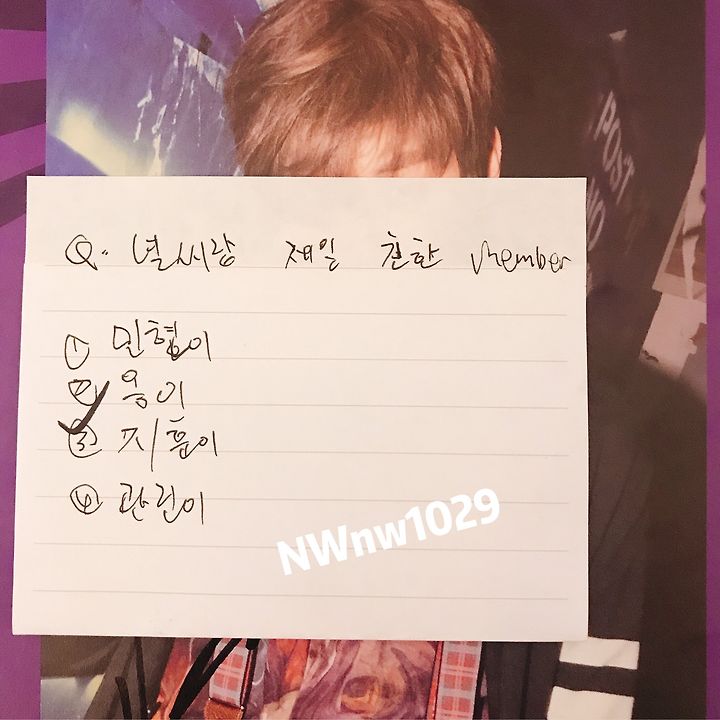 POST
NO
Q. 녤씨랑 제일 친한 member
① 민현이
② 옹이
③ 지훈이
④ 관린이
NWnw1029